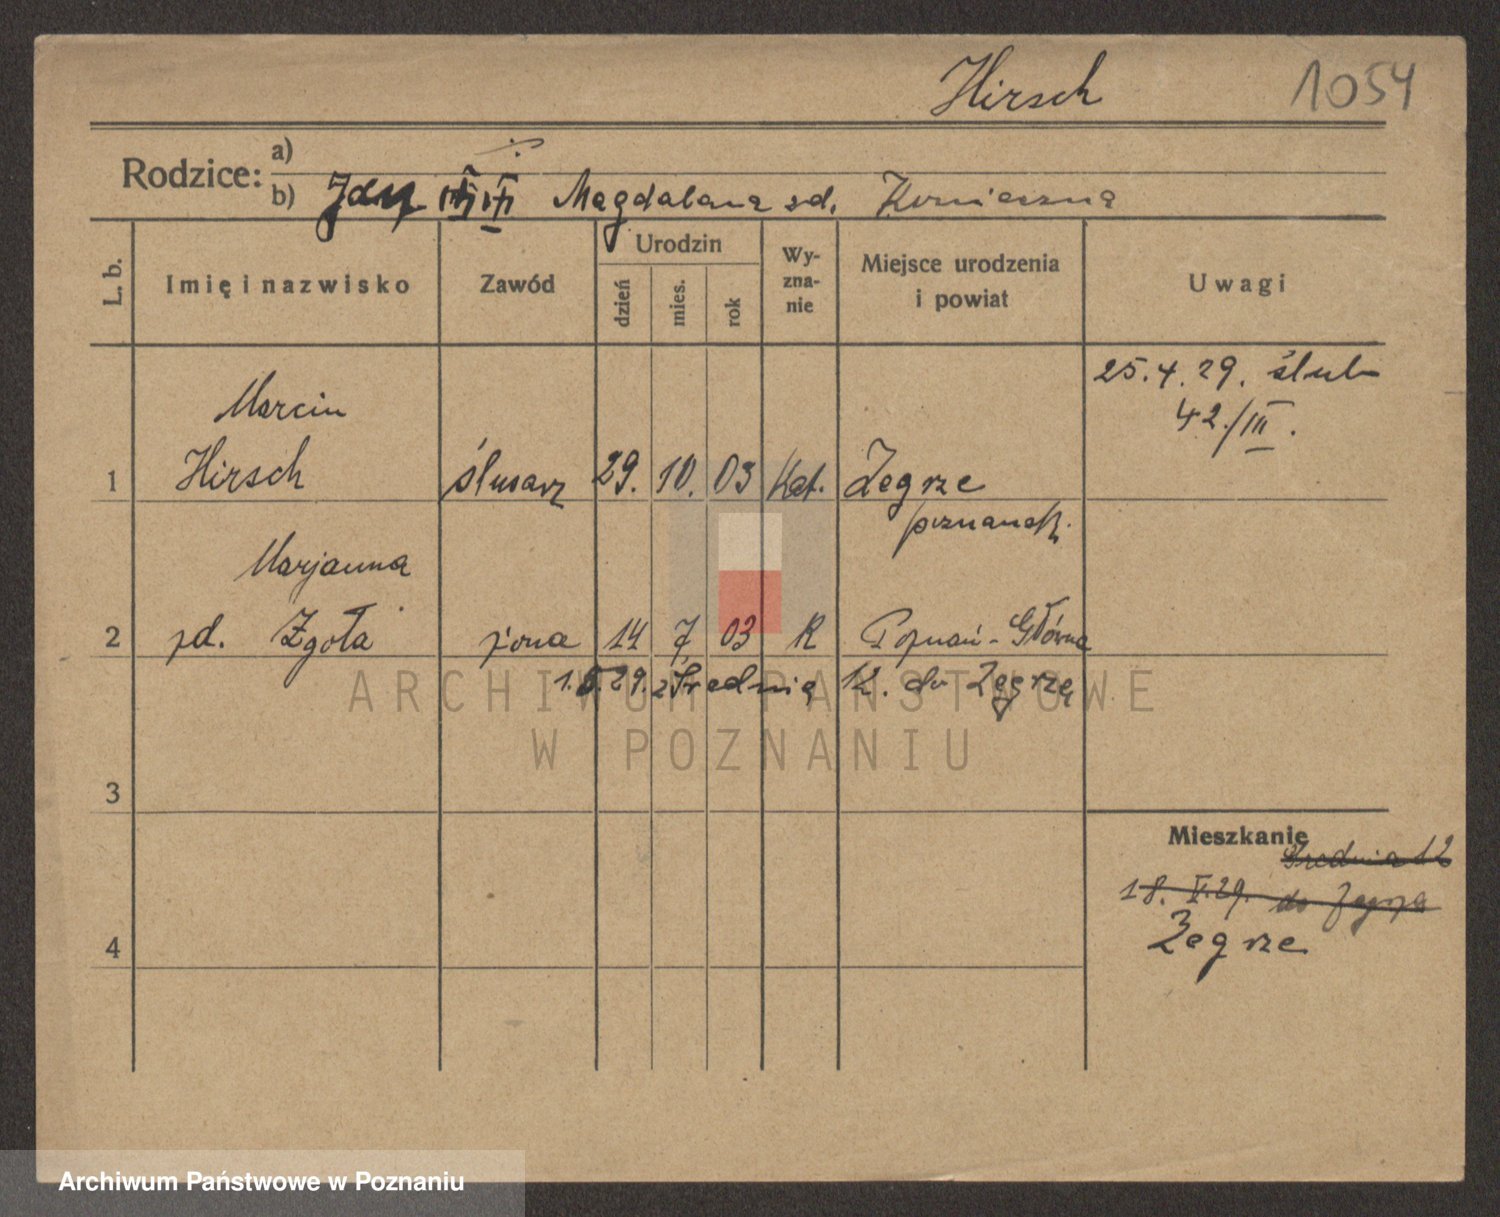 Hirsch 1054
Rodzice: a)
b) Magdalena zd. Konieczna
L. b. Imię i nazwisko Zawód Urodzin Wy-zna-nie Miejsce urodzenia i powiat Uwagi
dzień mies. rok
25.4.29. ślub
42./III.
Marcin
1 Hirsch ślusarz 29. 10. 03 Kat. Żegrze
poznansk.
Marjanna
2 zd. Zgoła żona 14 7 03 R Poznań-Główna
1.5.29. z Średnią 12. do Żegrze
ARCHIWUM PAŃSTWOWE
W POZNANIU
3
Mieszkanie
Średnia 12
18. V.29. do
Żegrze
4
Archiwum Państwowe w Poznaniu